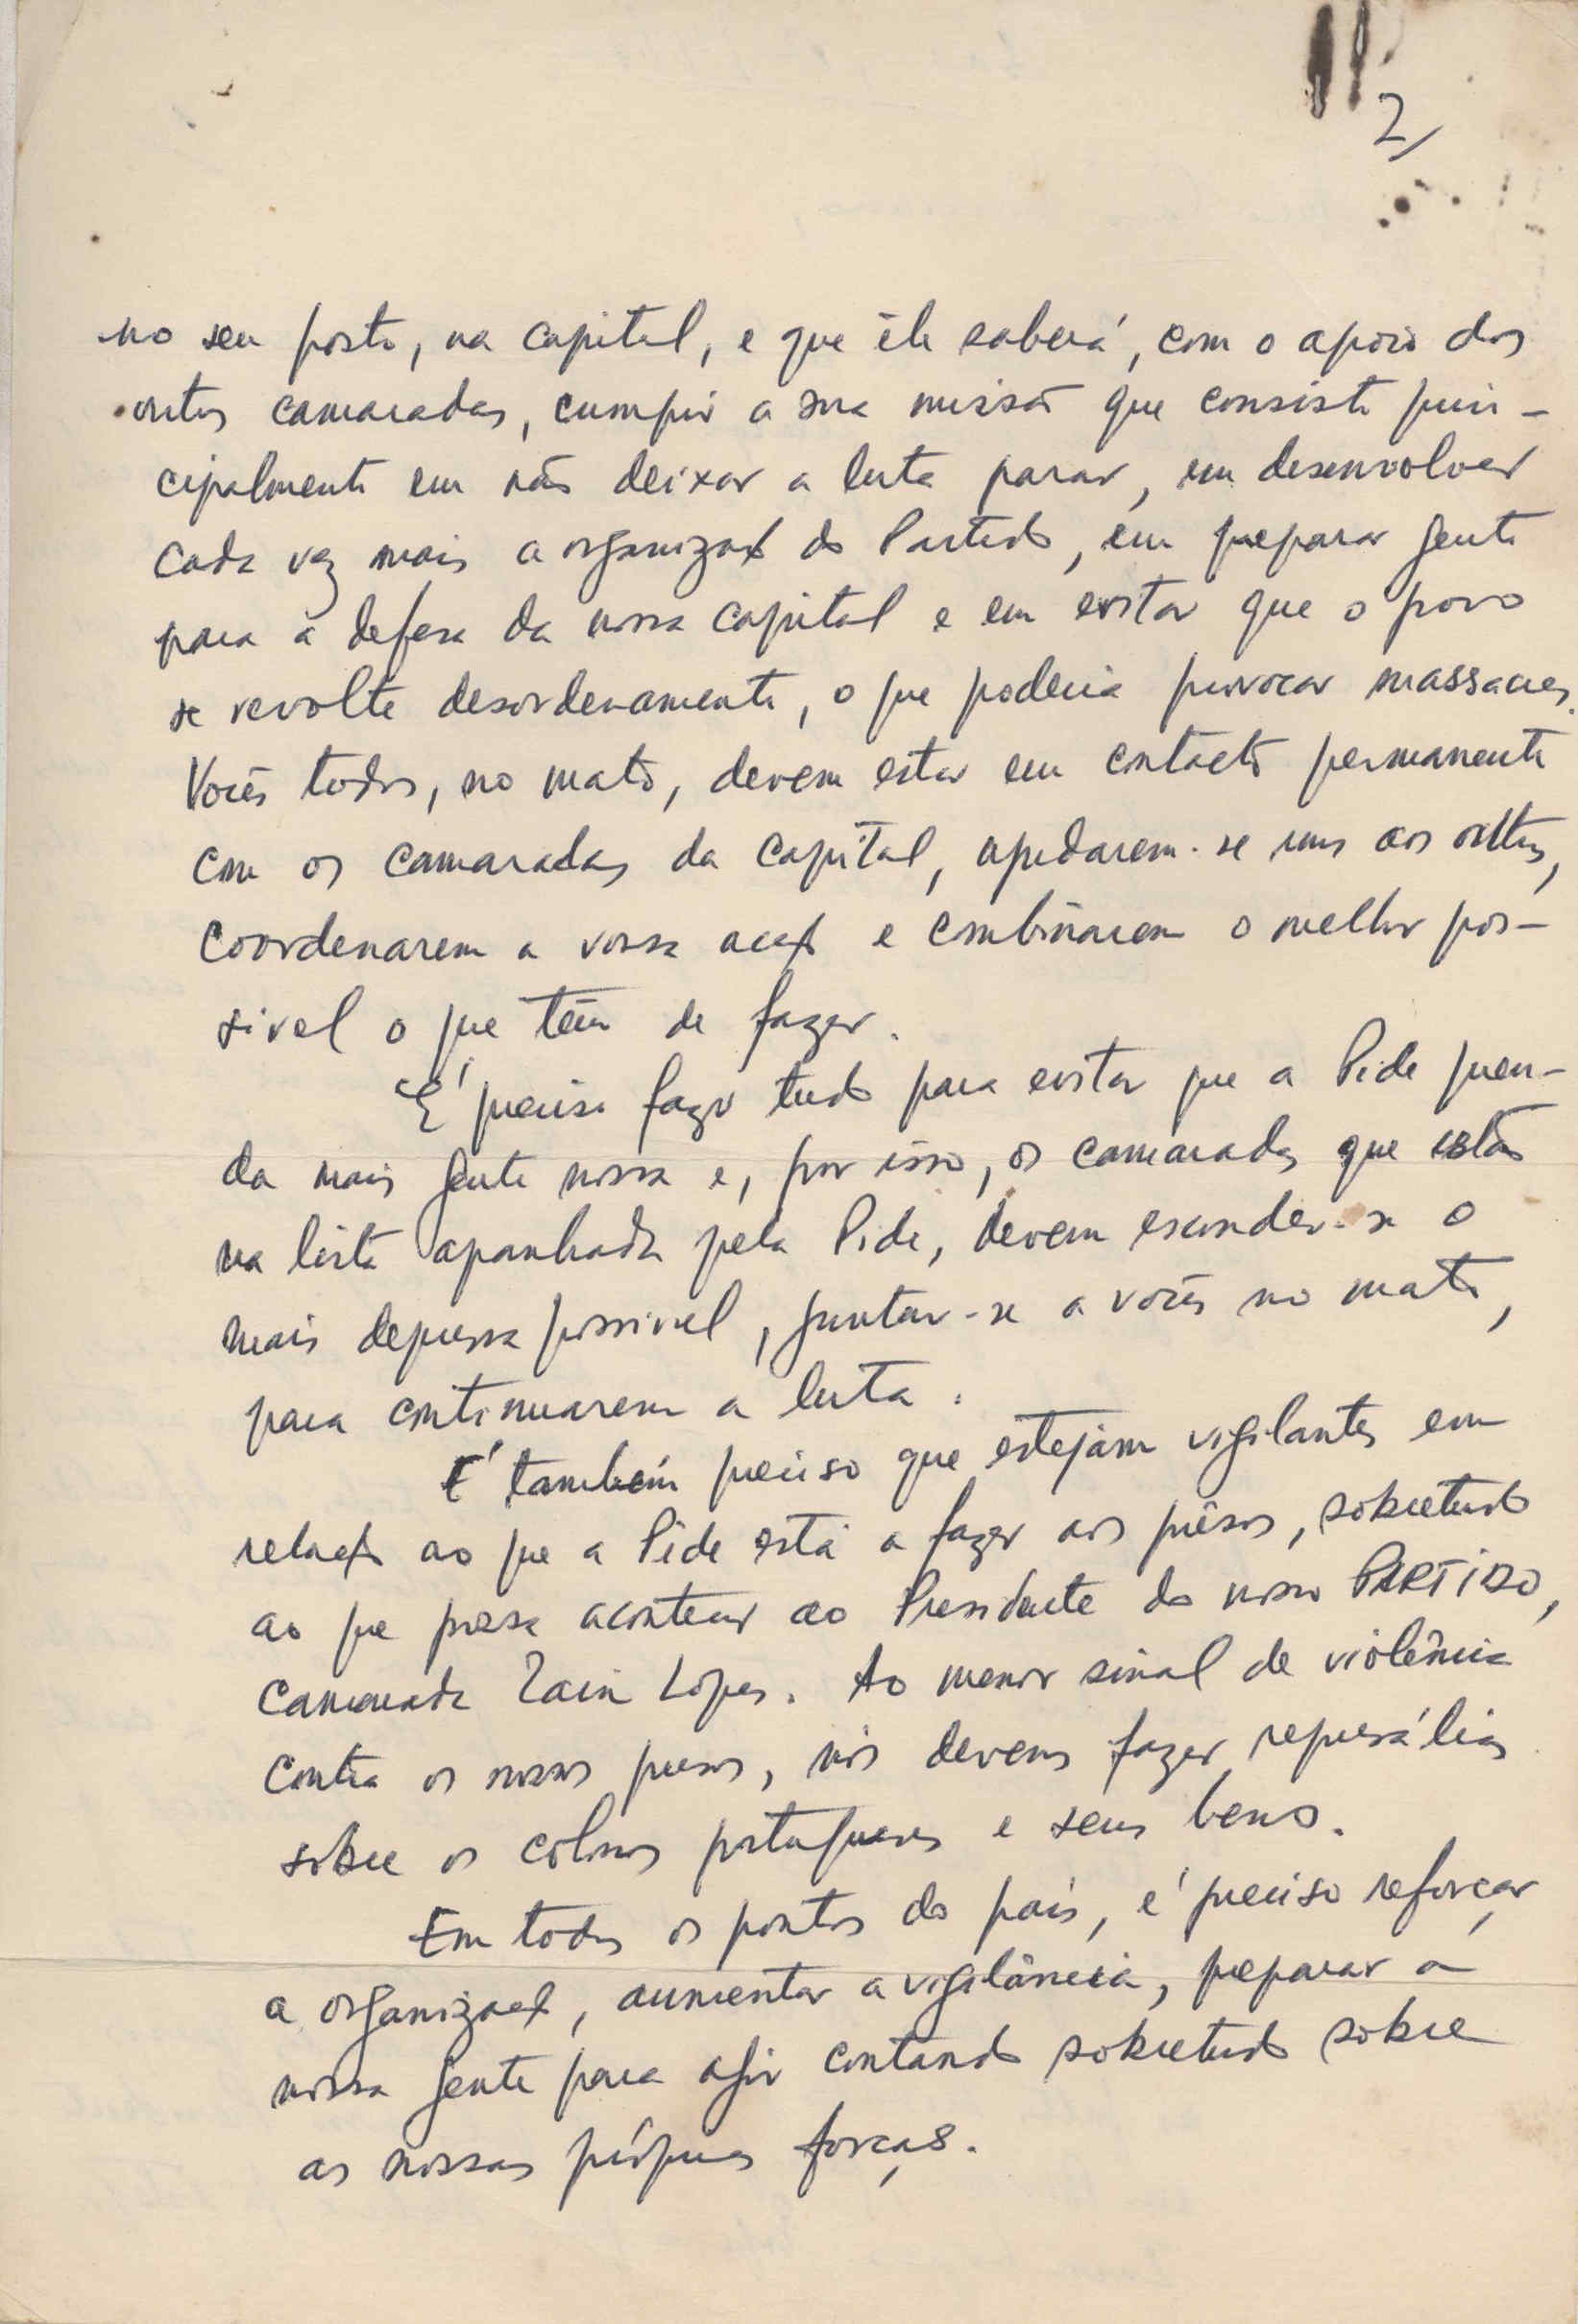 2/
no seu posto, na capital, e que êle saberá, com o apoio dos
outros camaradas, cumprir a sua missão que consiste prin-
cipalmente em não deixar a luta parar, em desenvolver
cada vez mais a organização do Partido, em preparar gente
para a defesa da nossa capital e em evitar que o povo
se revolte desordenamente, o que poderia provocar massacres.
Vocês todos, no mato, devem estar em contacto permanente
com os camaradas da capital, ajudarem-se uns aos outros,
coordenarem a vossa acção e combinarem o melhor pos-
sivel o que têm de fazer.
É preciso fazer tudo para evitar que a Pide pren-
da mais gente nossa e, por isso, os camaradas que estão
na lista apanhada pela Pide, devem esconder-se o
mais depressa possivel, juntar-se a vocês no mato,
para continuarem a luta.
É também preciso que estejam vigilantes em
relação ao que a Pide está a fazer aos prêsos, sobretudo
ao que possa acontecer ao Presidente do nosso PARTIDO,
camarada Zain Lopes. Ao menor sinal de violência
contra os nossos presos, nós devemos fazer represálias
sôbre os colonos portugueses e seus bens.
Em todos os pontos do país, é preciso reforçar
a organização, aumentar a vigilância, preparar a
nossa gente para agir contando sobretudo sobre
as nossas próprias forças.